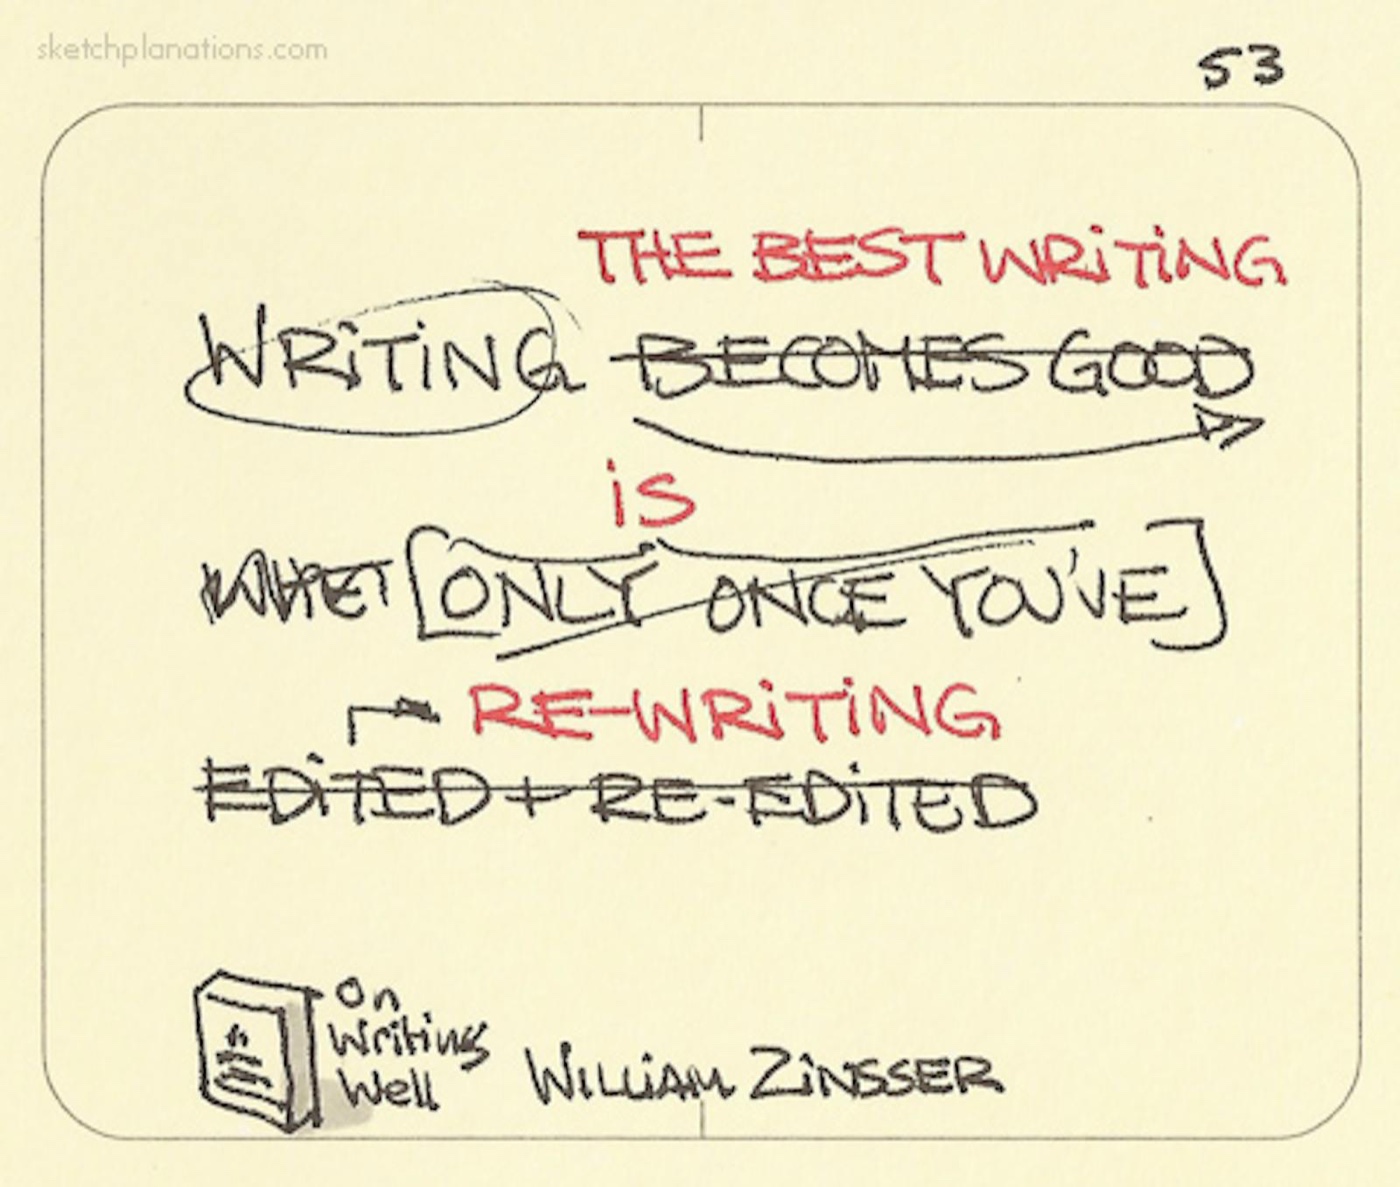 sketchplanations.com
53
THE BEST WRITING
WRITING BECOMES GOOD
is
[ONLY ONCE YOU'VE]
RE-WRITING
EDITED + RE-EDITED
On
Writing
Well
WILLIAM ZINSSER